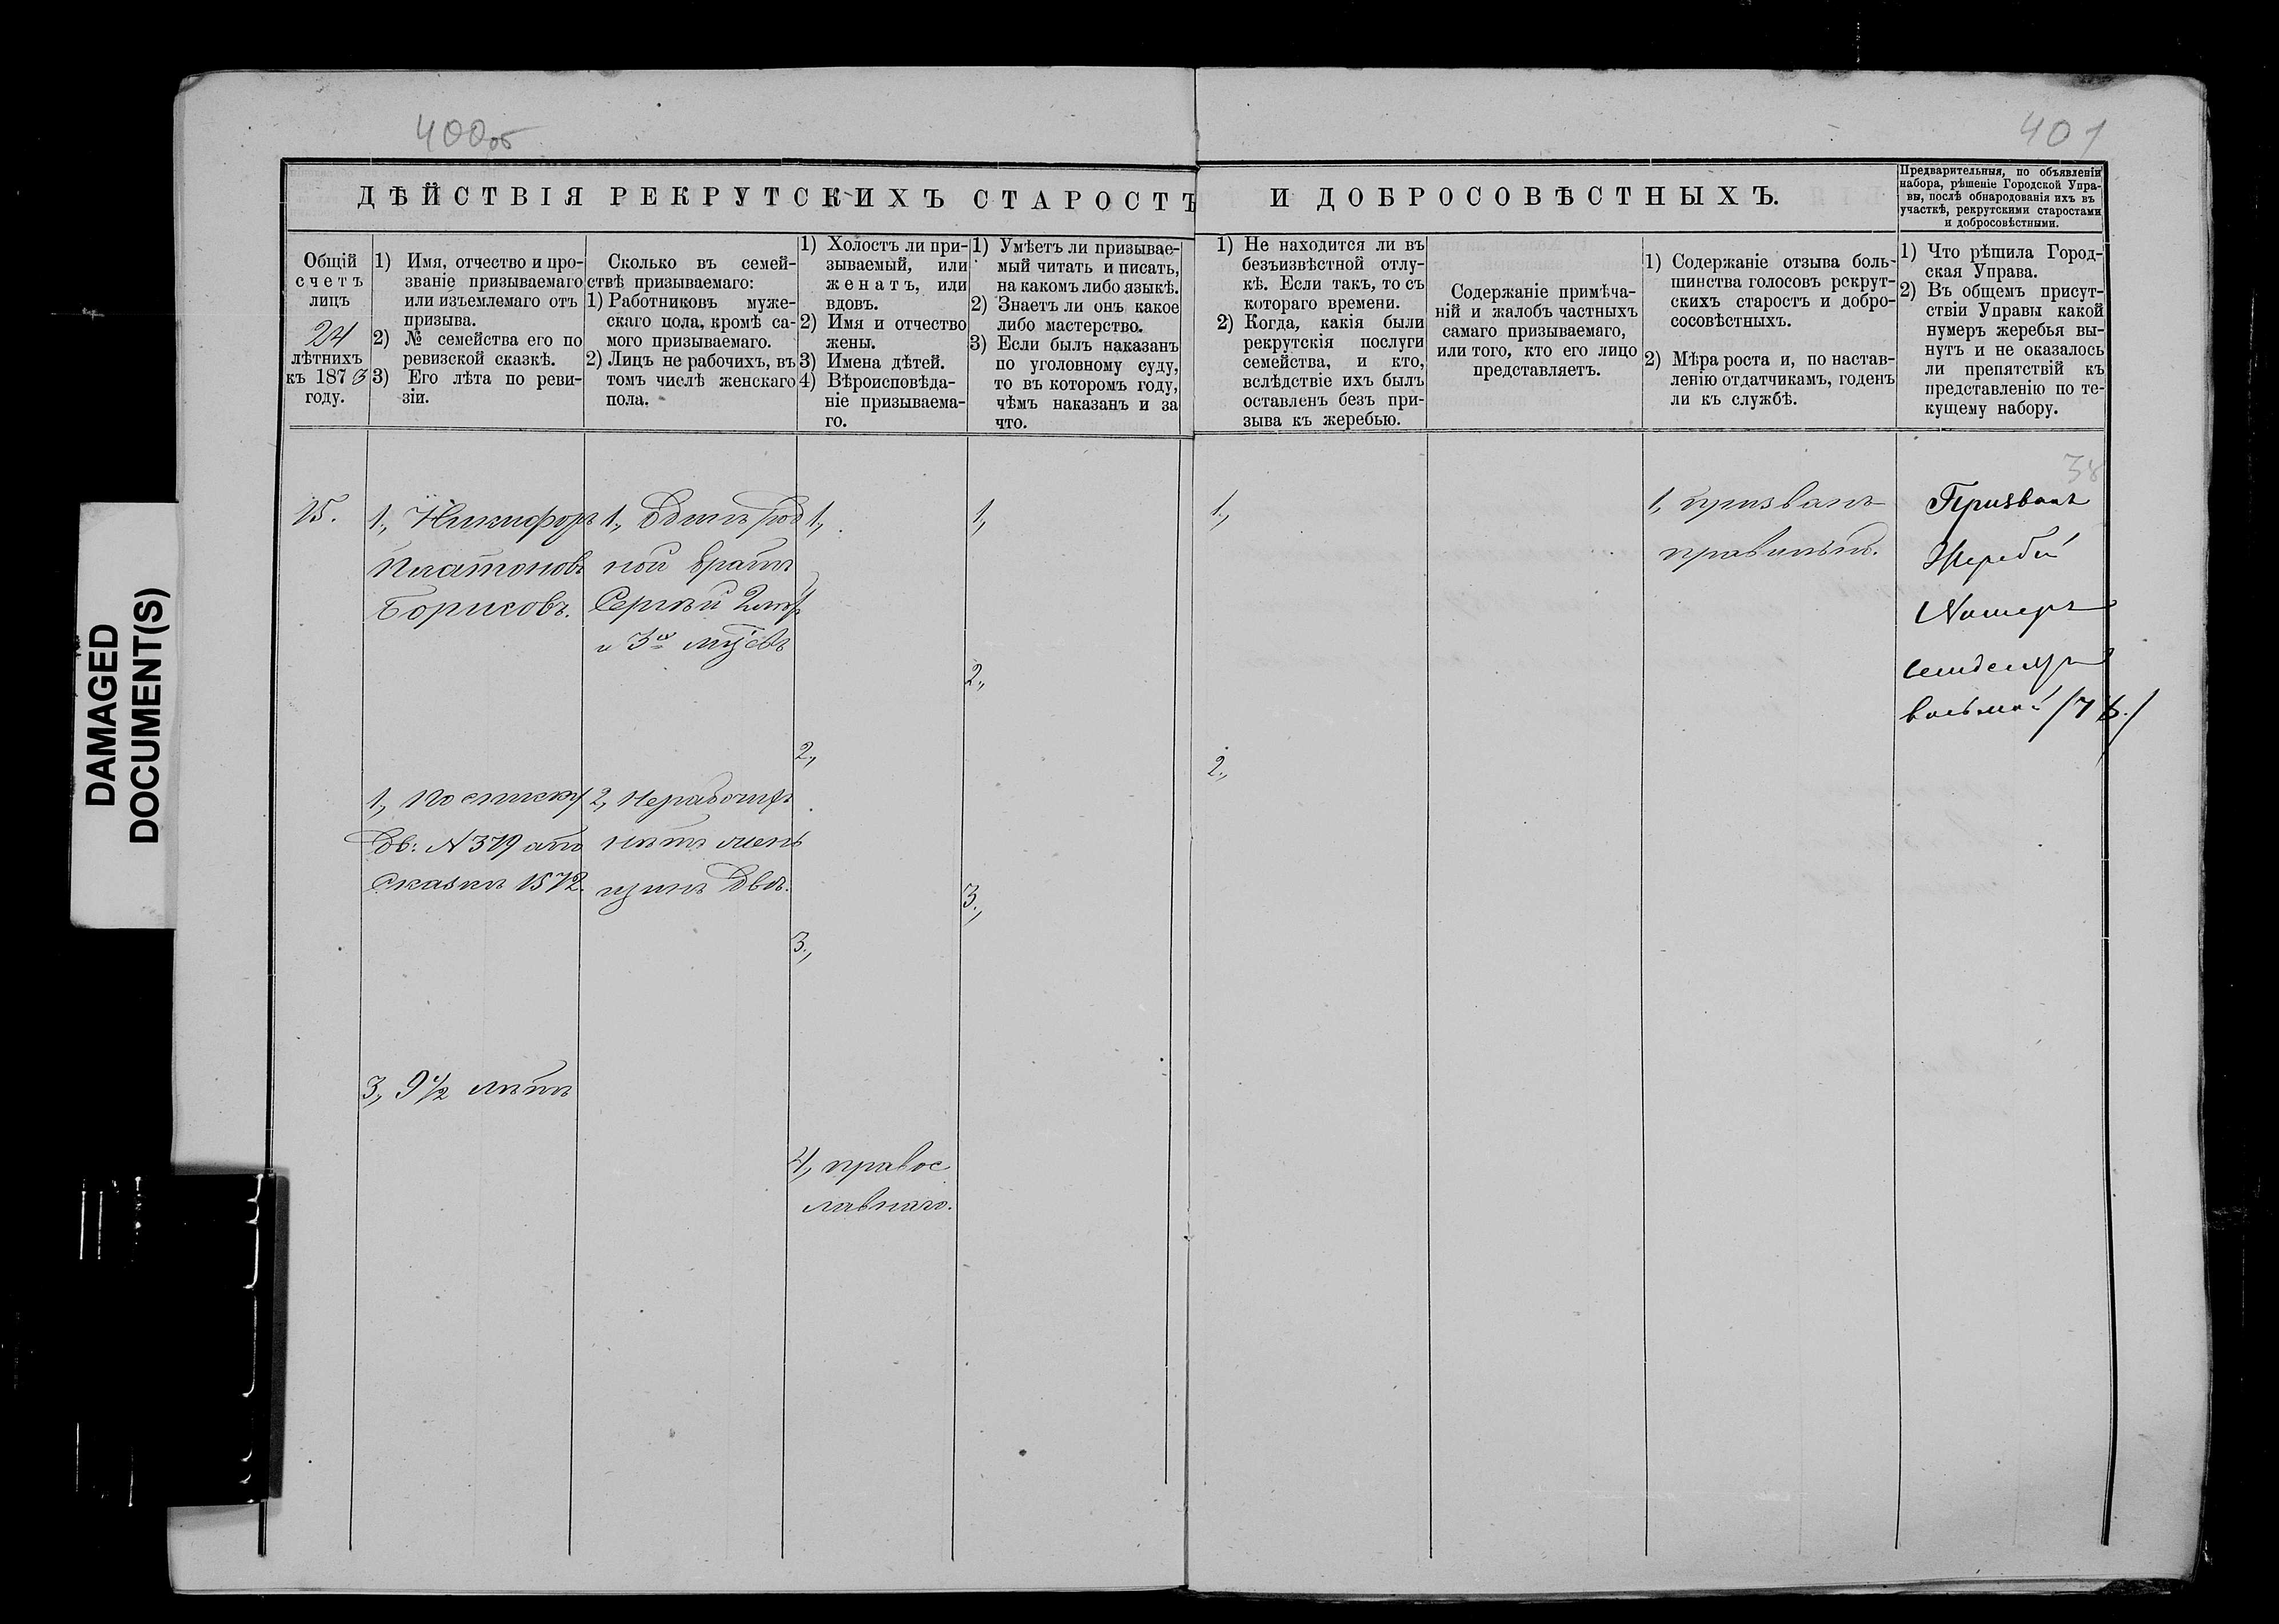 400об
401
ДѢЙСТВІЯ РЕКРУТСКИХЪ СТАРОСТЪ И ДОБРОСОВѢСТНЫХЪ.
Предварительныя, по объявленіи
набора, рѣшеніе Городской Упра-
вы, послѣ обнародованія ихъ въ
участкѣ, рекрутскими старостами
и добросовѣстными.
Общій
счетъ
лицъ
24
лѣтнихъ
къ 1873
году.
1) Имя, отчество и про-
званіе призываемаго
или изъемлемаго отъ
призыва.
2) № семейства его по
ревизской сказкѣ.
3) Его лѣта по реви-
зіи.
Сколько въ семей-
ствѣ призываемаго:
1) Работниковъ муже-
скаго пола, кромѣ са-
мого призываемаго.
2) Лицъ не рабочихъ, въ
томъ числѣ женскаго
пола.
1) Холостъ ли при-
зываемый, или
женатъ, или
вдовъ.
2) Имя и отчество
жены.
3) Имена дѣтей.
4) Вѣроисповѣда-
ніе призываема-
го.
1) Умѣетъ ли призывае-
мый читать и писать,
на какомъ либо языкѣ.
2) Знаетъ ли онъ какое
либо мастерство.
3) Если былъ наказанъ
по уголовному суду,
то въ которомъ году,
чѣмъ наказанъ и за
что.
1) Не находится ли въ
безъизвѣстной отлу-
кѣ. Если такъ, то съ
котораго времени.
2) Когда, какія были
рекрутскія послуги
семейства, и кто,
вслѣдствіе ихъ былъ
оставленъ безъ при-
зыва къ жеребью.
Содержаніе примѣча-
ній и жалобъ частныхъ
самаго призываемаго,
или того, кто его лицо
представляетъ.
1) Содержаніе отзыва боль-
шинства голосовъ рекрут-
скихъ старостъ и добро-
сосовѣстныхъ.
2) Мѣра роста и, по настав-
ленію отдатчикамъ, годенъ
ли къ службѣ.
1) Что рѣшила Город-
ская Управа.
2) Въ общемъ присут-
ствіи Управы какой
нумеръ жеребья вы-
нутъ и не оказалось
ли препятствій къ
представленію по те-
кущему набору.
15.
1., Никифоръ
Платоновъ
Борисовъ.
1, По списку
Дв: № 379 а по
Сказкѣ 1572.
3, 9 1/2 лѣтъ
1., Одинъ род
ной братъ
Сергѣй
2, Неработа
нѣтъ жен
щинъ двѣ.
1.,
2.,
3.,
4, правос
лавнаго.
1,
2.,
3.,
1.,
2.,
1, призванъ
правильно.
38
Призванъ
Жребій
Номеръ
семдесятъ
восьмой /78./
DAMAGED
DOCUMENT(S)